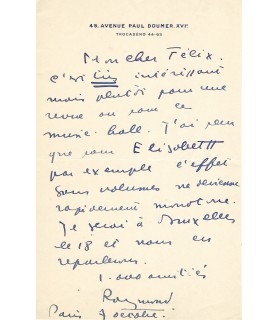 48, AVENUE PAUL DOUMER. XVIE
TROCADÉRO 44-60
Mon cher Félix.
c'est très intéressant
mais plutôt pour une
revue ou pour le
music-hall. J'ai peur
que pour Elisabeth
par exemple l'effet
sans volumes ne devienne
rapidement monotone.
Je serai à Bruxelles
le 18 et nous en
reparlerons.
1.000 amitiés
Raymond
Paris 7 octobre.